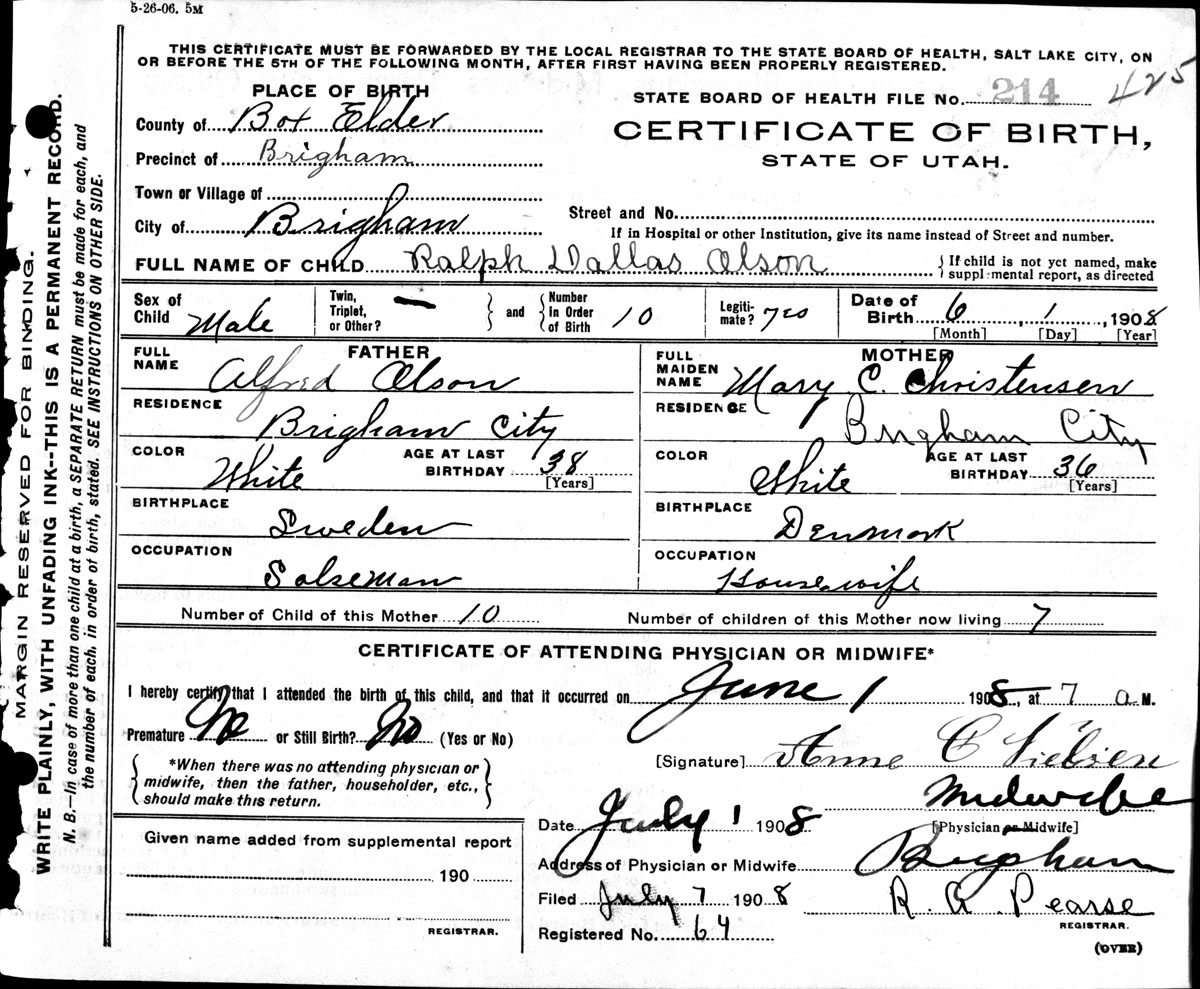 5-26-06. 5M
THIS CERTIFICATE MUST BE FORWARDED BY THE LOCAL REGISTRAR TO THE STATE BOARD OF HEALTH, SALT LAKE CITY, ON
OR BEFORE THE 5TH OF THE FOLLOWING MONTH, AFTER FIRST HAVING BEEN PROPERLY REGISTERED.
425
PLACE OF BIRTH
STATE BOARD OF HEALTH FILE NO. 214
County of Box Elder
CERTIFICATE OF BIRTH,
Precinct of Brigham
STATE OF UTAH.
Town or Village of
City of Brigham
Street and No.
If in Hospital or other Institution, give its name instead of Street and number.
FULL NAME OF CHILD Ralph Dallas Olson
If child is not yet named, make
supplemental report, as directed
Sex of Child Male
Twin, Triplet, or Other? —
and
Number In Order of Birth 10
Legiti-mate? yes
Date of Birth 6, 1, 1908
[Month] [Day] [Year]
FATHER
FULL NAME Alfred Olson
RESIDENCE Brigham City
COLOR White
AGE AT LAST BIRTHDAY 38 [Years]
BIRTHPLACE Sweden
OCCUPATION Salseman
MOTHER
FULL MAIDEN NAME Mary C. Christensen
RESIDENCE Brigham City
COLOR White
AGE AT LAST BIRTHDAY 36 [Years]
BIRTHPLACE Denmark
OCCUPATION Housewife
Number of Child of this Mother 10
Number of children of this Mother now living 7
CERTIFICATE OF ATTENDING PHYSICIAN OR MIDWIFE*
I hereby certify that I attended the birth of this child, and that it occurred on June 1 1908, at 7 a M.
Premature No or Still Birth? No (Yes or No)
*When there was no attending physician or
midwife, then the father, householder, etc.,
should make this return.
[Signature] Anne C Nielsen
Midwife
[Physician or Midwife]
Date July 1 1908
Address of Physician or Midwife Brigham
Filed July 7 1908
R. A. Pearse
REGISTRAR.
Registered No. 64
(OVER)
Given name added from supplemental report
190
REGISTRAR.
MARGIN RESERVED FOR BINDING.
WRITE PLAINLY, WITH UNFADING INK--THIS IS A PERMANENT RECORD.
N. B.—In case of more than one child at a birth, a SEPARATE RETURN must be made for each, and
the number of each, in order of birth, stated. SEE INSTRUCTIONS ON OTHER SIDE.